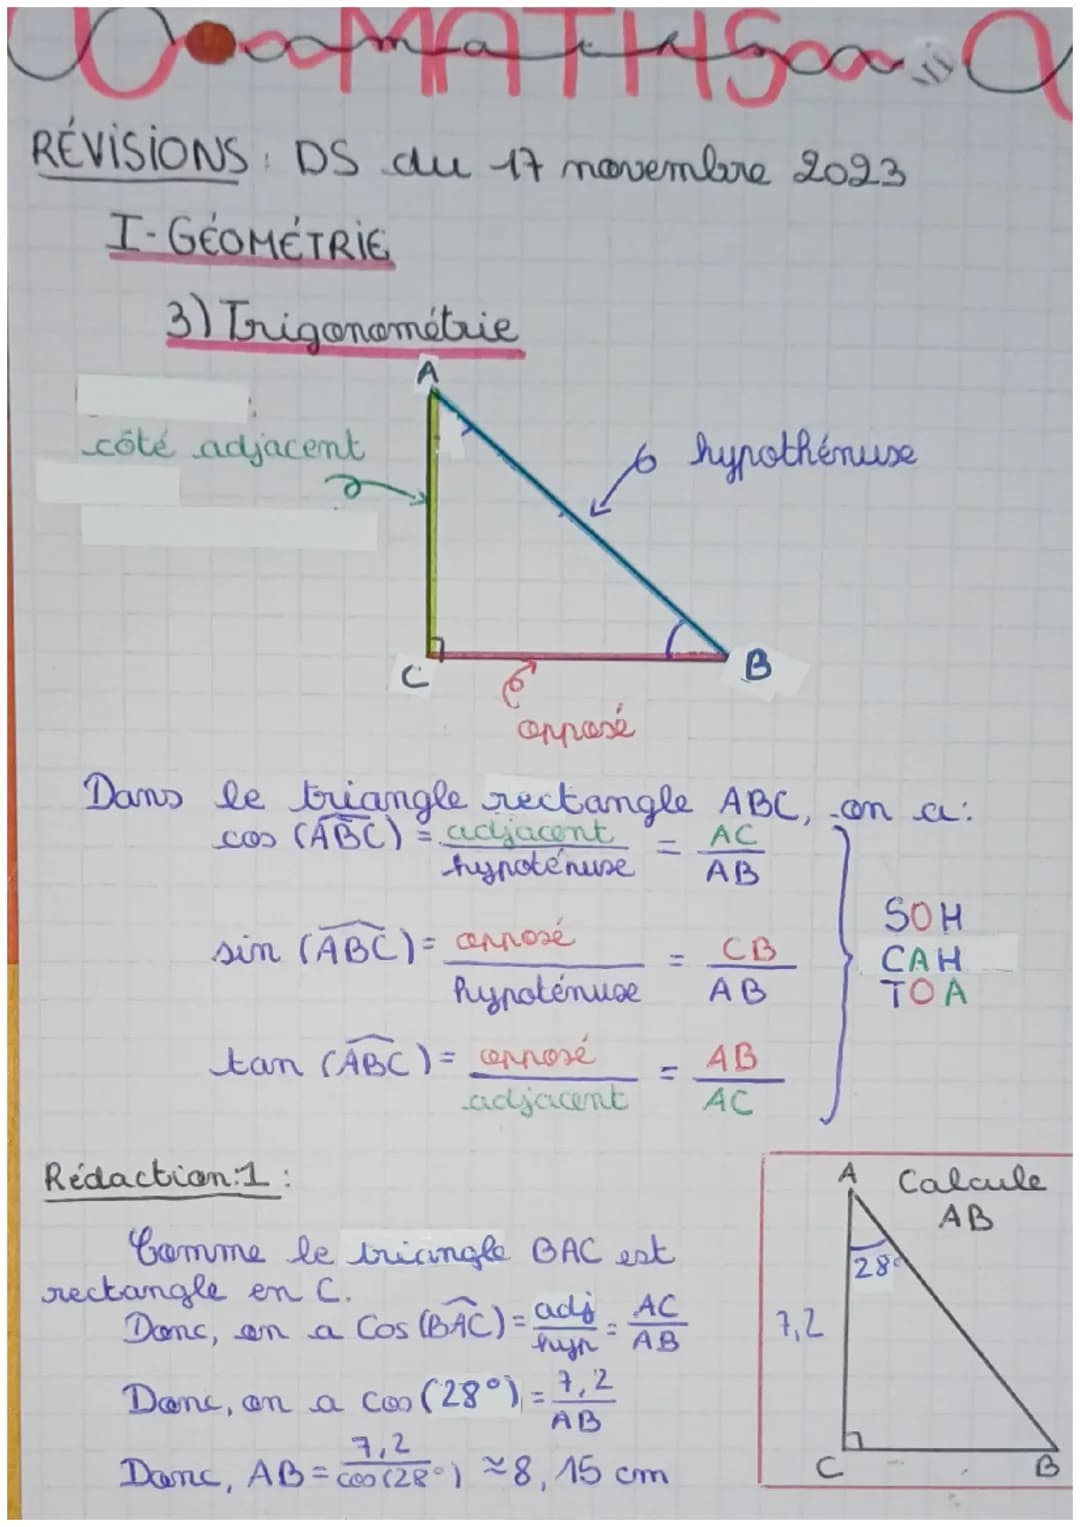 MATHS
maths
RÉVISIONS : DS du 17 novembre 2023
I-GÉOMÉTRIE
3) Trigonométrie
A
côté adjacent
hypothénuse
C
B
opposé
Dans le triangle rectangle ABC, on a :
cos (ABC) = adjacent / hypoténuse = AC / AB
sin (ABC) = opposé / hypoténuse = CB / AB
tan (ABC) = opposé / adjacent = AB / AC
SOH
CAH
TOA
Rédaction:1 :
Comme le triangle BAC est
rectangle en C.
Donc, on a Cos (BAC) = adj / hyp = AC / AB
Donc, on a cos (28°) = 7,2 / AB
Donc, AB = 7,2 / cos (28°) ≈ 8,15 cm
A
Calcule
AB
28°
7,2
C
B